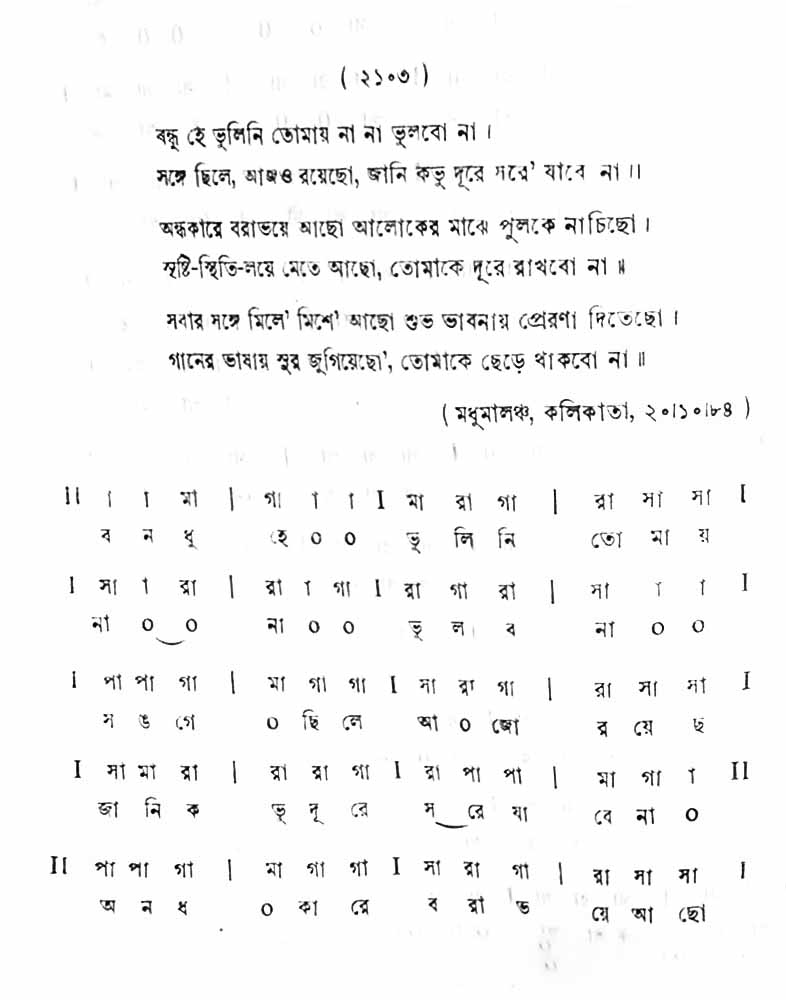 ( ২১০৩ )
বন্ধু হে ভুলিনি তোমায় না না ভুলবো না ।
সঙ্গে ছিলে, আজও রয়েছো, জানি কভু দূরে সরে’ যাবে না ।।
অন্ধকারে বরাভয়ে আছো আলোকের মাঝে পুলকে নাচিছো ।
সৃষ্টি-স্থিতি-লয়ে মেতে আছো, তোমাকে দূরে রাখবো না ॥
সবার সঙ্গে মিলে’ মিশে’ আছো শুভ ভাবনায় প্রেরণা দিতেছো ।
গানের ভাষায় সুর জুগিয়েছো’, তোমাকে ছেড়ে থাকবো না ॥
( মধুমালঞ্চ, কলিকাতা, ২০।১০।৮৪ )
II া া মা | গা া া I মা রা গা | রা সা সা I
ব ন ধু হে ০ ০ ভু লি নি তো মা য়
I সা া রা | রা া গা I রা গা রা | সা া া I
না ০ ০ না ০ ০ ভু ল ব না ০ ০
I পা পা গা | মা গা গা I সা রা গা | রা সা সা I
স ঙ গে ০ ছি লে আ ০ জো র য়ে ছ
I সা মা রা | রা রা গা I রা পা পা | মা গা া II
জা নি ক ভু দূ রে স রে যা বে না ০
II পা পা গা | মা গা গা I সা রা গা | রা সা সা I
অ ন ধ ০ কা রে ব রা ভ য়ে আ ছো